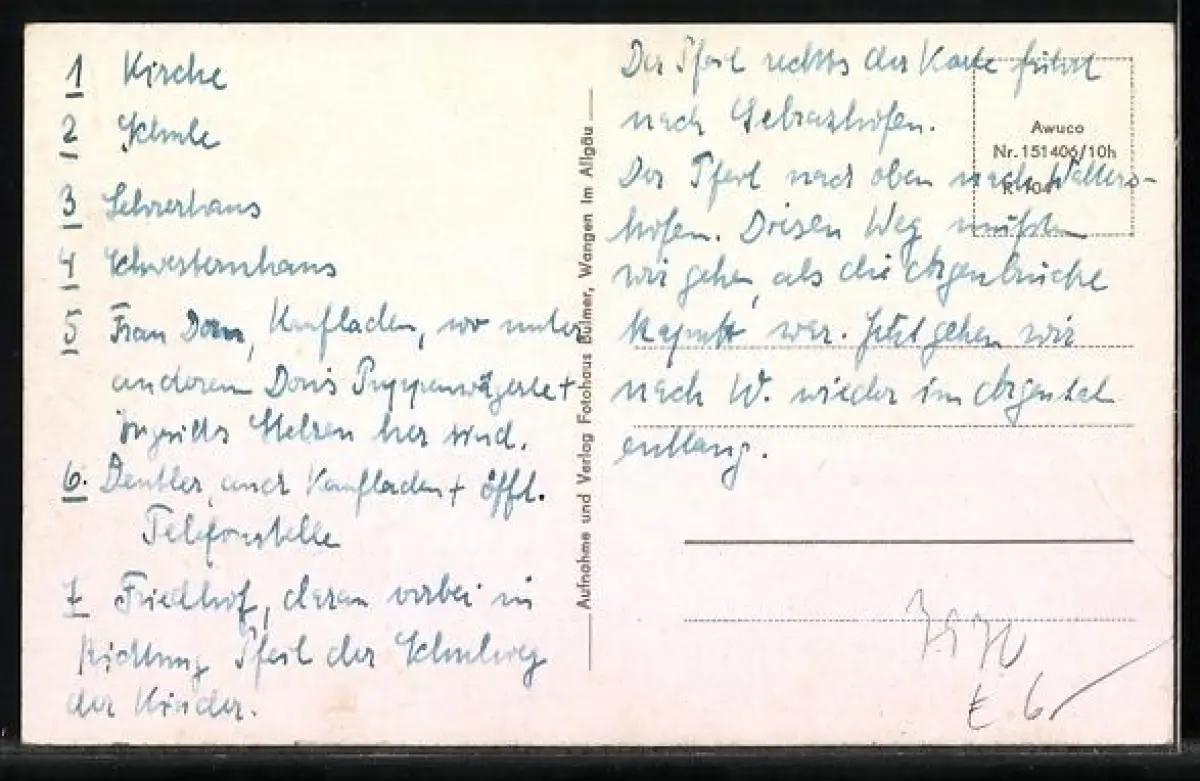 1 Kirche
2 Schule
3 Lehrerhaus
4 Schwesternhaus
5 Frau Dorn, Kaufladen, wo unter
anderem Doris Puppenwägerle +
Ingrids Stelzen her sind.
6. Dentler, auch Kaufladen + öfftl.
Telefonstelle
7 Friedhof, daran vorbei in
Richtung Pfeil der Schulweg
der Kinder.
Aufnahme und Verlag Fotohaus Bulmer, Wangen im Allgäu
Der Pfeil rechts der Karte führt
nach Gebrazhofen.
Der Pfeil nach oben nach Walters-
hofen. Diesen Weg mußten
wir gehen, als die Argenbrücke
kaputt war. Jetzt gehen wir
nach W. wieder im Argental
entlang.
Awuco
Nr. 151406/10h
E 6